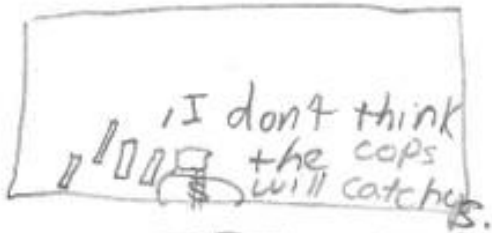 , I don't think
the cops
will catch us.